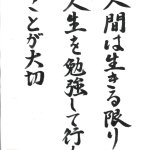 人間は生きる限り
人生を勉強して行く
ことが大切